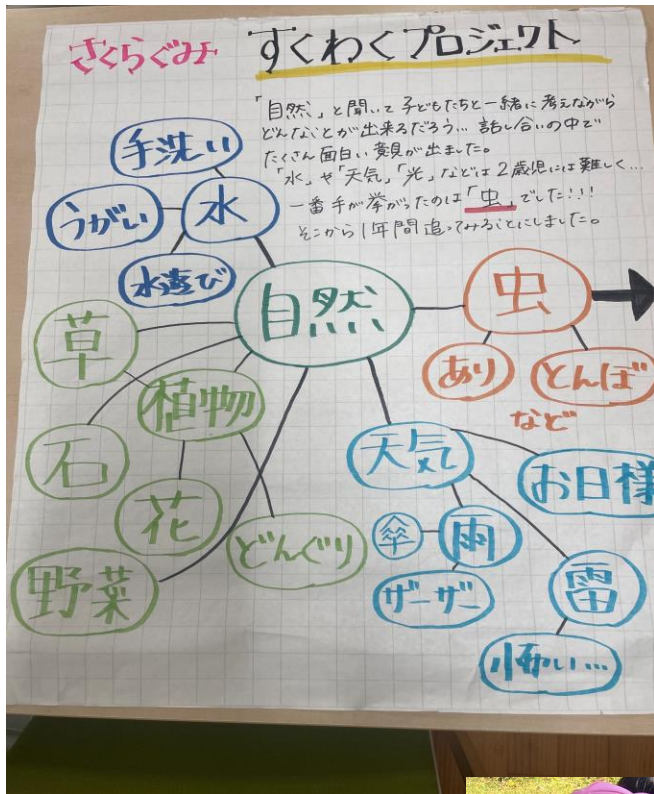 さくらぐみ すくわくプロジェクト
「自然」と聞いて子どもたちと一緒に考えながら
どんなことが出来るだろう… 話し合いの中で
たくさん面白い意見が出ました。
「水」や「天気」「光」などは2歳児には難しく…
一番手が挙がったのは「虫」でした!!!
そこから1年間追ってみることにしました。
手洗い
うがい
水
水遊び
自然
虫
あり
とんぼ
など
草
植物
石
花
どんぐり
野菜
天気
お日様
傘
雨
ザーザー
雷
怖い…